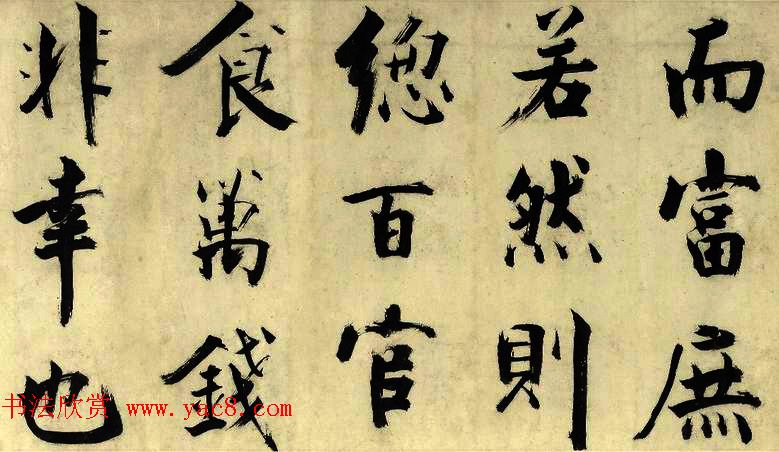 而富庶
若然則
緫百官
食萬錢
非幸也
书法欣赏 www.yac8.com